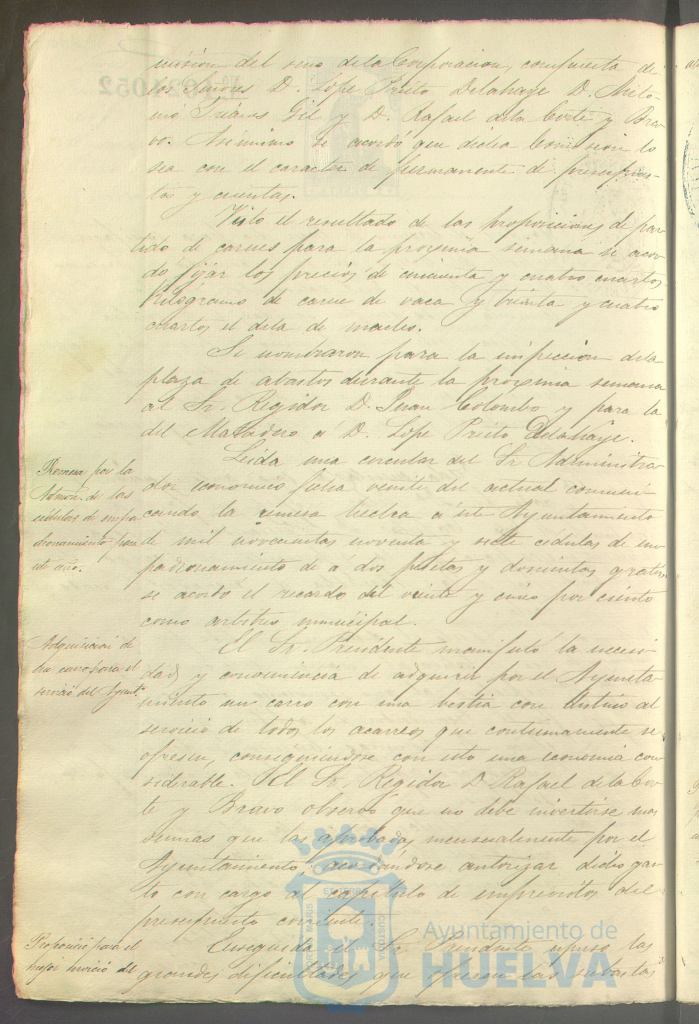 mision del seno de la Corporacion, compuesta de
los Señores D. Lope Prieto Delahaye D. Anto-
nio Trianes Gil y D. Rafael de la Corte y Bra-
vo. Asimismo se acordó que dicha Comision lo
sea con el caracter de permanente de presupues-
tos y cuentas.
Visto el resultado de las proposiciones de par-
tido de carnes para la procsima semana se acor-
dó fijar los precios de cincuenta y cuatro cuartos
kilógramo de carne de vaca y treinta y cuatro
cuartos el de la de macho.
Se nombraron para la inspeccion de la
plaza de abastos durante la procsima semana
al Sr. Regidor D. Juan Colombo y para la
del Matadero á D. Lope Prieto Delahaye.
Remesa por la
Admon. de las
cédulas de empa
dronamiento para
este año.
Leida una circular del Sr Administra-
dor economico fecha veinte del actual comuni-
cando la remesa hecha á este Ayuntamiento
de mil novecientas noventa y siete cedulas de em-
padronamiento de á dos pesetas y doscientas gratis
se acordó el recargo del veinte y cinco por ciento
como arbitrio municipal.
Adquisicion de
un carro para el
servicio del Ayunt.
El Sr. Presidente manifestó la necesi-
dad y conveniencia de adquirir por el Ayunta-
miento un carro con una bestia con destino al
servicio de todos los acarreos que continuamente se
ofrecen, consiguiendose con esto una economia con-
siderable. El Sr. Regidor D Rafael de la Cor-
te y Bravo observó que no debe invertirse mas
sumas que las aprobadas mensualmente por el
Ayuntamiento, acordandose autorizar dicho gas-
to con cargo al capitulo de imprevistos del
presupuesto corriente.
para el
mejor servicio del
Enseguida el Sr. Presidente espuso las
grandes dificultades que ofrecen las subastas
Ayuntamiento de
HUELVA